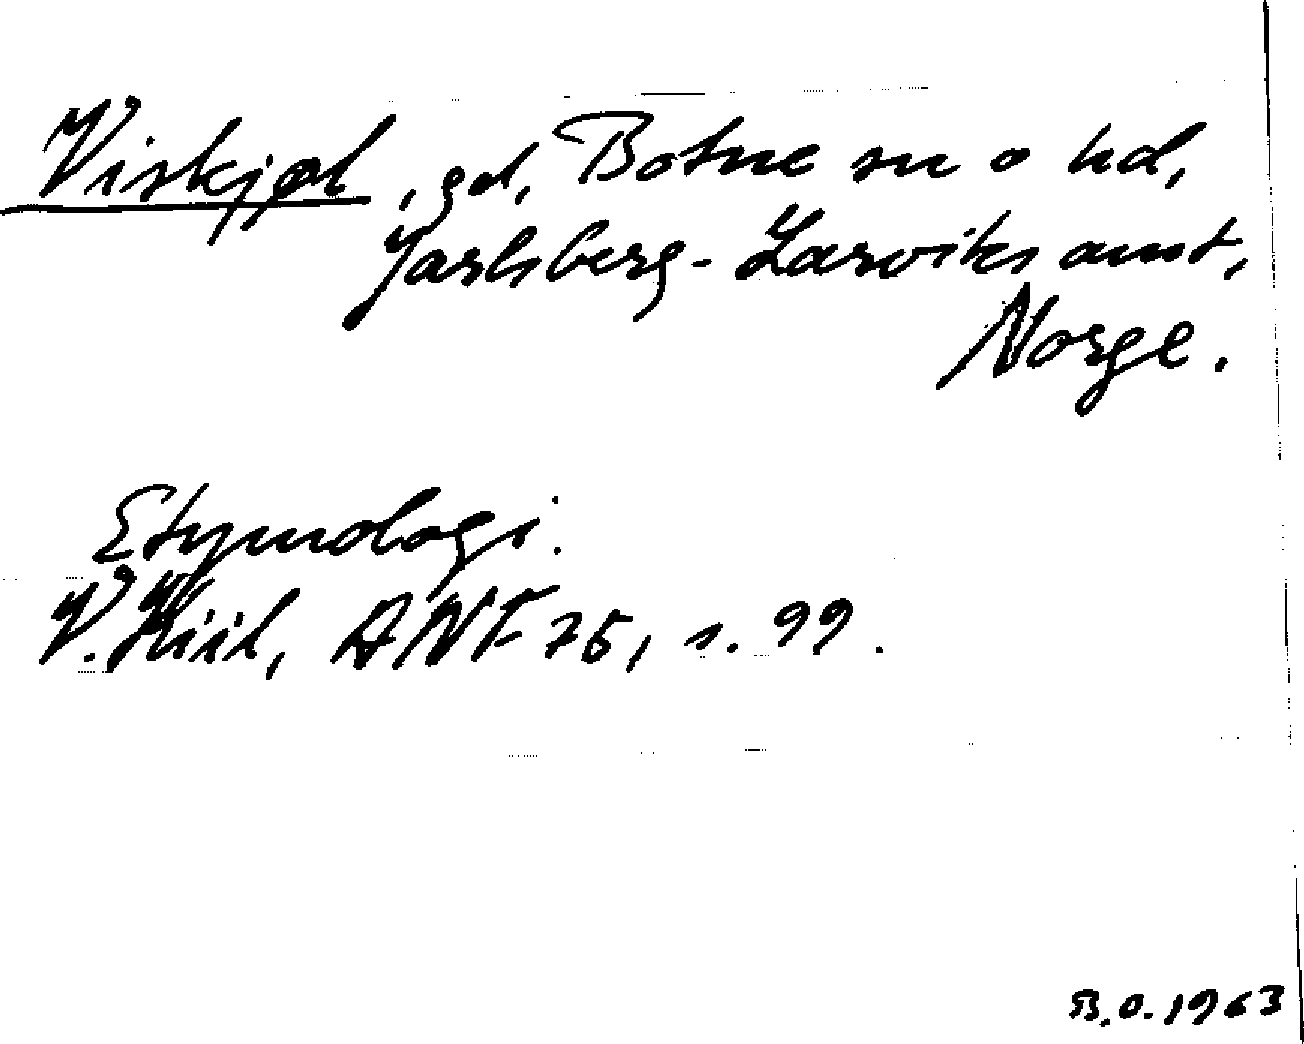 Viskjøl, gd, Botne sn o hd,
Jarlsberg-Larviks amt,
Norge.
Etymologi.
V. Kiil, ANF 75, s. 99.
B.O. 1963